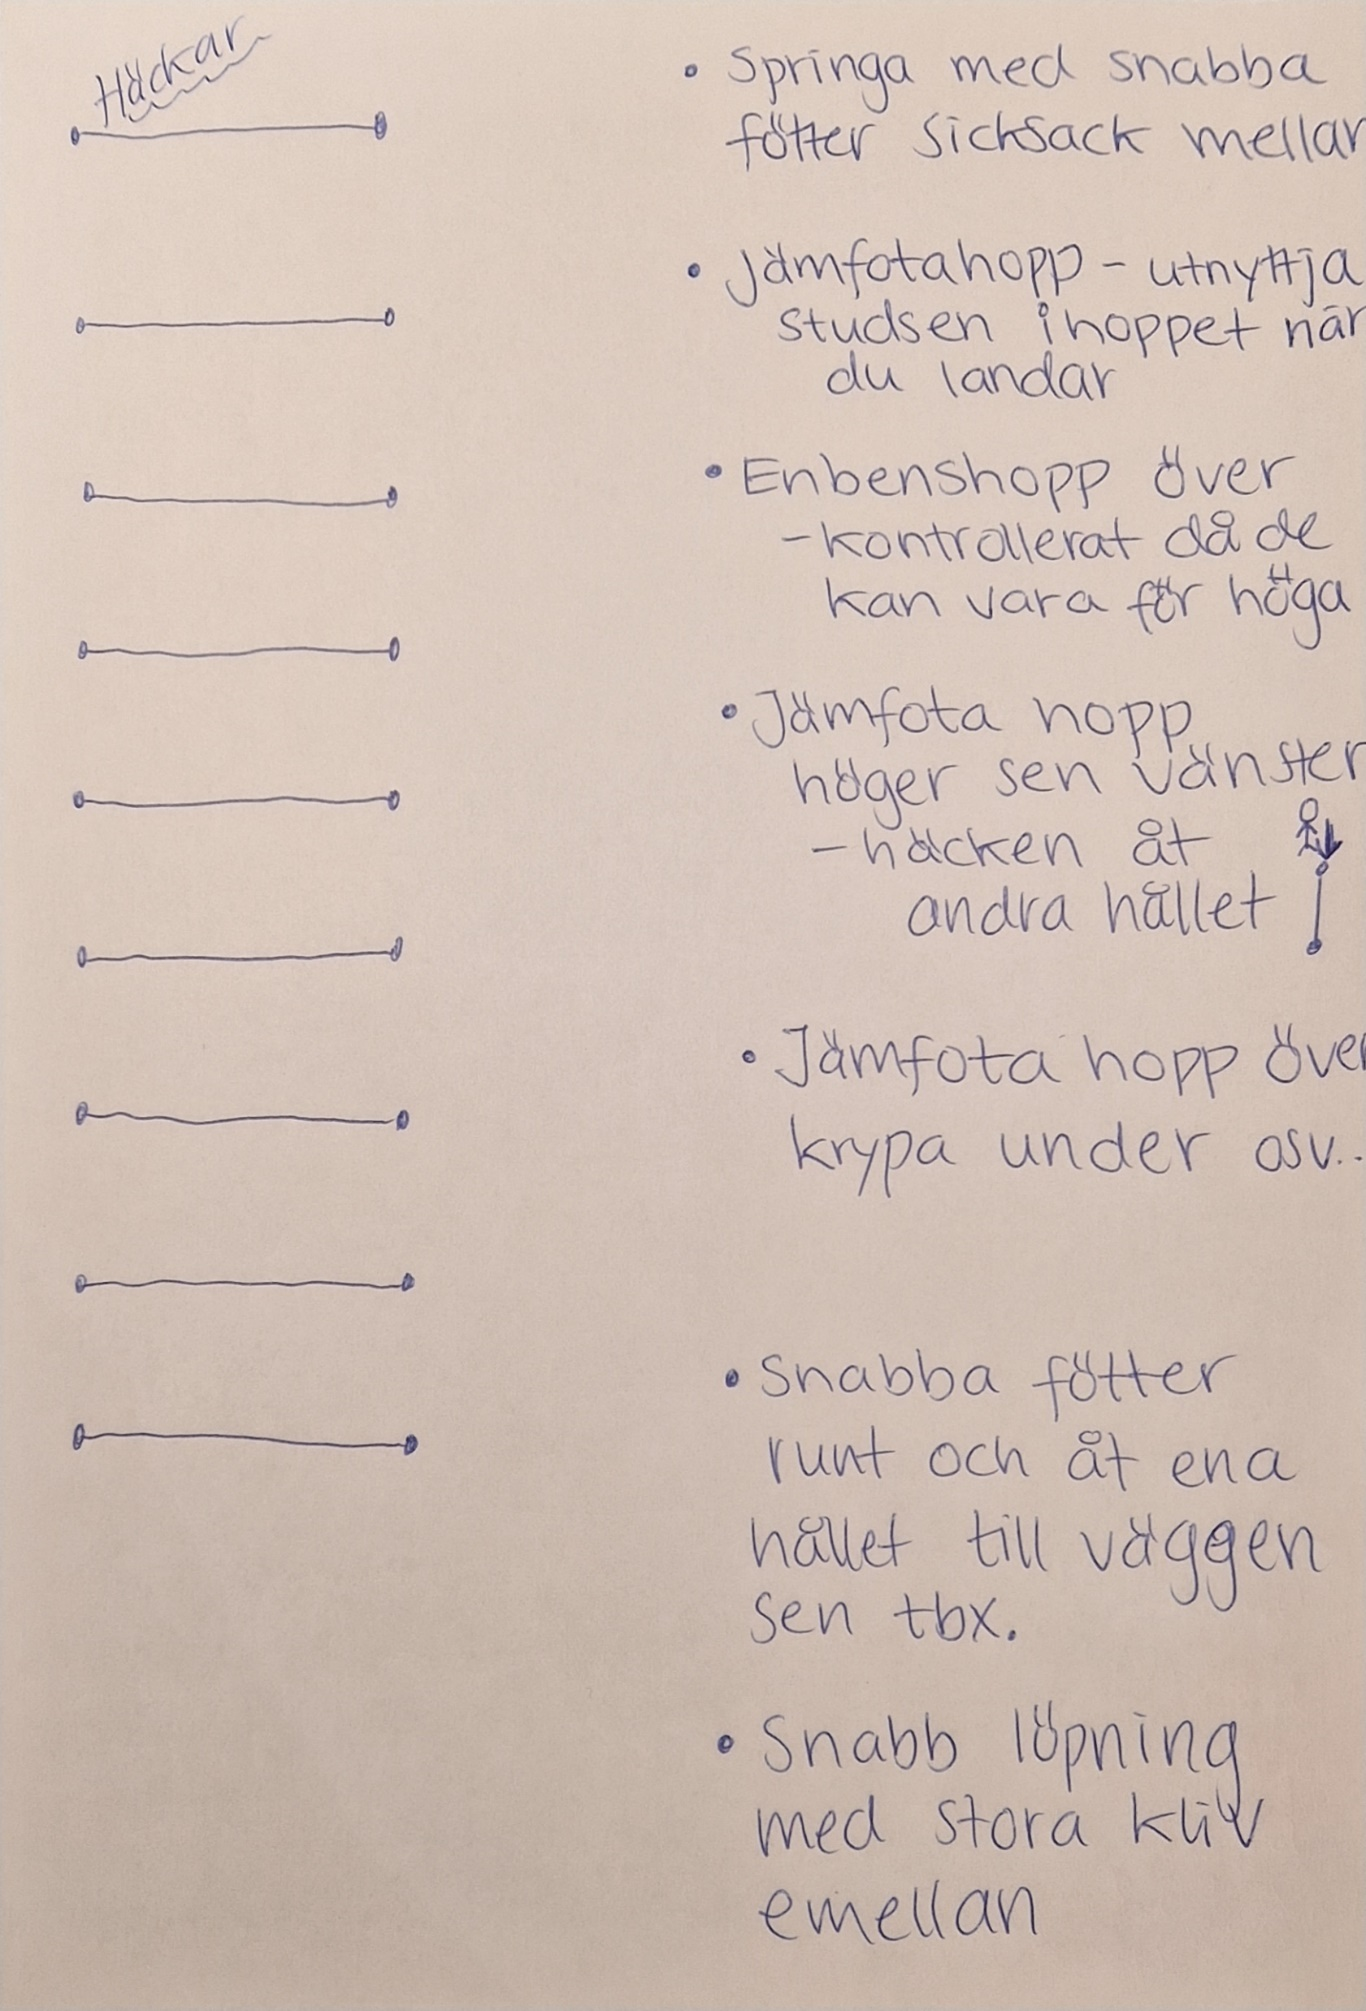 Häckar
• Springa med snabba
fötter sicksack mellan
• Jämfotahopp - utnyttja
studsen i hoppet när
du landar
• Enbenshopp över
- kontrollerat då de
kan vara för höga
• Jämfota hopp
höger sen vänster
- häcken åt
andra hållet
• Jämfota hopp över
krypa under osv..
• Snabba fötter
runt och åt ena
hållet till väggen
sen tbx.
• Snabb löpning
med stora kliv
emellan